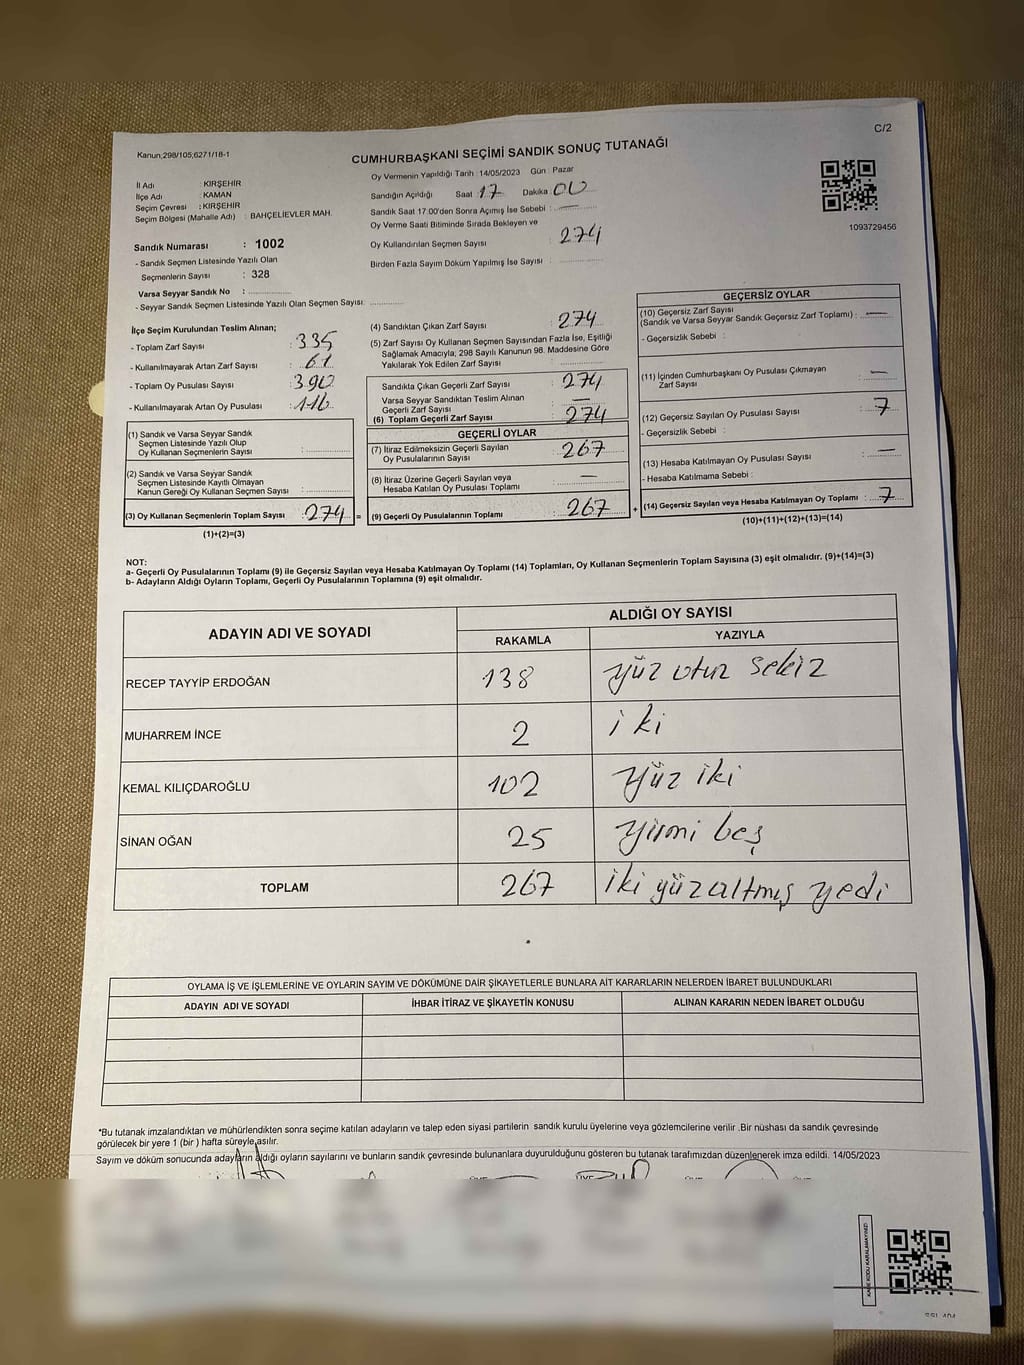 C/2
Kanun;298/105;6271/18-1
CUMHURBAŞKANI SEÇİMİ SANDIK SONUÇ TUTANAĞI
İl Adı : KIRŞEHİR
İlçe Adı : KAMAN
Seçim Çevresi : KIRŞEHİR
Seçim Bölgesi (Mahalle Adı) : BAHÇELİEVLER MAH.
Sandık Numarası : 1002
- Sandık Seçmen Listesinde Yazılı Olan
Seçmenlerin Sayısı : 328
Varsa Seyyar Sandık No :
- Seyyar Sandık Seçmen Listesinde Yazılı Olan Seçmen Sayısı:
Oy Vermenin Yapıldığı Tarih :14/05/2023 Gün : Pazar
Sandığın Açıldığı Saat 17 Dakika 00
Sandık Saat 17.00'den Sonra Açımış İse Sebebi : —
Oy Verme Saati Bitiminde Sırada Bekleyen ve
Oy Kullandırılan Seçmen Sayısı : 274
Birden Fazla Sayım Döküm Yapılmış İse Sayısı :
1093729456
İlçe Seçim Kurulundan Teslim Alınan;
- Toplam Zarf Sayısı : 335
- Kullanılmayarak Artan Zarf Sayısı : 61
- Toplam Oy Pusulası Sayısı : 390
- Kullanılmayarak Artan Oy Pusulası : 116
(1) Sandık ve Varsa Seyyar Sandık
Seçmen Listesinde Yazılı Olup
Oy Kullanan Seçmenlerin Sayısı :
(2) Sandık ve Varsa Seyyar Sandık
Seçmen Listesinde Kayıtlı Olmayan
Kanun Gereği Oy Kullanan Seçmen Sayısı :
(3) Oy Kullanan Seçmenlerin Toplam Sayısı : 274 =
(1)+(2)=(3)
(4) Sandıktan Çıkan Zarf Sayısı : 274
(5) Zarf Sayısı Oy Kullanan Seçmen Sayısından Fazla İse, Eşitliği
Sağlamak Amacıyla; 298 Sayılı Kanunun 98. Maddesine Göre
Yakılarak Yok Edilen Zarf Sayısı :
Sandıkta Çıkan Geçerli Zarf Sayısı : 274
Varsa Seyyar Sandıktan Teslim Alınan
Geçerli Zarf Sayısı : —
(6) Toplam Geçerli Zarf Sayısı : 274
GEÇERLİ OYLAR
(7) İtiraz Edilmeksizin Geçerli Sayılan
Oy Pusulalarının Sayısı : 267
(8) İtiraz Üzerine Geçerli Sayılan veya
Hesaba Katılan Oy Pusulası Toplamı : —
(9) Geçerli Oy Pusulalarının Toplamı : 267 +
GEÇERSİZ OYLAR
(10) Geçersiz Zarf Sayısı
(Sandık ve Varsa Seyyar Sandık Geçersiz Zarf Toplamı) : —
- Geçersizlik Sebebi :
(11) İçinden Cumhurbaşkanı Oy Pusulası Çıkmayan
Zarf Sayısı : —
(12) Geçersiz Sayılan Oy Pusulası Sayısı : 7
- Geçersizlik Sebebi :
(13) Hesaba Katılmayan Oy Pusulası Sayısı : —
- Hesaba Katılmama Sebebi :
(14) Geçersiz Sayılan veya Hesaba Katılmayan Oy Toplamı : 7
(10)+(11)+(12)+(13)=(14)
NOT:
a- Geçerli Oy Pusulalarının Toplamı (9) ile Geçersiz Sayılan veya Hesaba Katılmayan Oy Toplamı (14) Toplamları, Oy Kullanan Seçmenlerin Toplam Sayısına (3) eşit olmalıdır. (9)+(14)=(3)
b- Adayların Aldığı Oyların Toplamı, Geçerli Oy Pusulalarının Toplamına (9) eşit olmalıdır.
ADAYIN ADI VE SOYADI ALDIĞI OY SAYISI
RAKAMLA YAZIYLA
RECEP TAYYİP ERDOĞAN 138 yüz otuz sekiz
MUHARREM İNCE 2 iki
KEMAL KILIÇDAROĞLU 102 yüz iki
SİNAN OĞAN 25 yirmi beş
TOPLAM 267 iki yüz altmış yedi
OYLAMA İŞ VE İŞLEMLERİNE VE OYLARIN SAYIM VE DÖKÜMÜNE DAİR ŞİKAYETLERLE BUNLARA AİT KARARLARIN NELERDEN İBARET BULUNDUKLARI
ADAYIN ADI VE SOYADI İHBAR İTİRAZ VE ŞİKAYETİN KONUSU ALINAN KARARIN NEDEN İBARET OLDUĞU
*Bu tutanak imzalandıktan ve mühürlendikten sonra seçime katılan adayların ve talep eden siyasi partilerin sandık kurulu üyelerine veya gözlemcilerine verilir .Bir nüshası da sandık çevresinde
görülecek bir yere 1 (bir ) hafta süreyle asılır.
Sayım ve döküm sonucunda adayların aldığı oyların sayılarını ve bunların sandık çevresinde bulunanlara duyurulduğunu gösteren bu tutanak tarafımızdan düzenlenerek imza edildi. 14/05/2023
KARE KODU KARALAMAYINIZ!